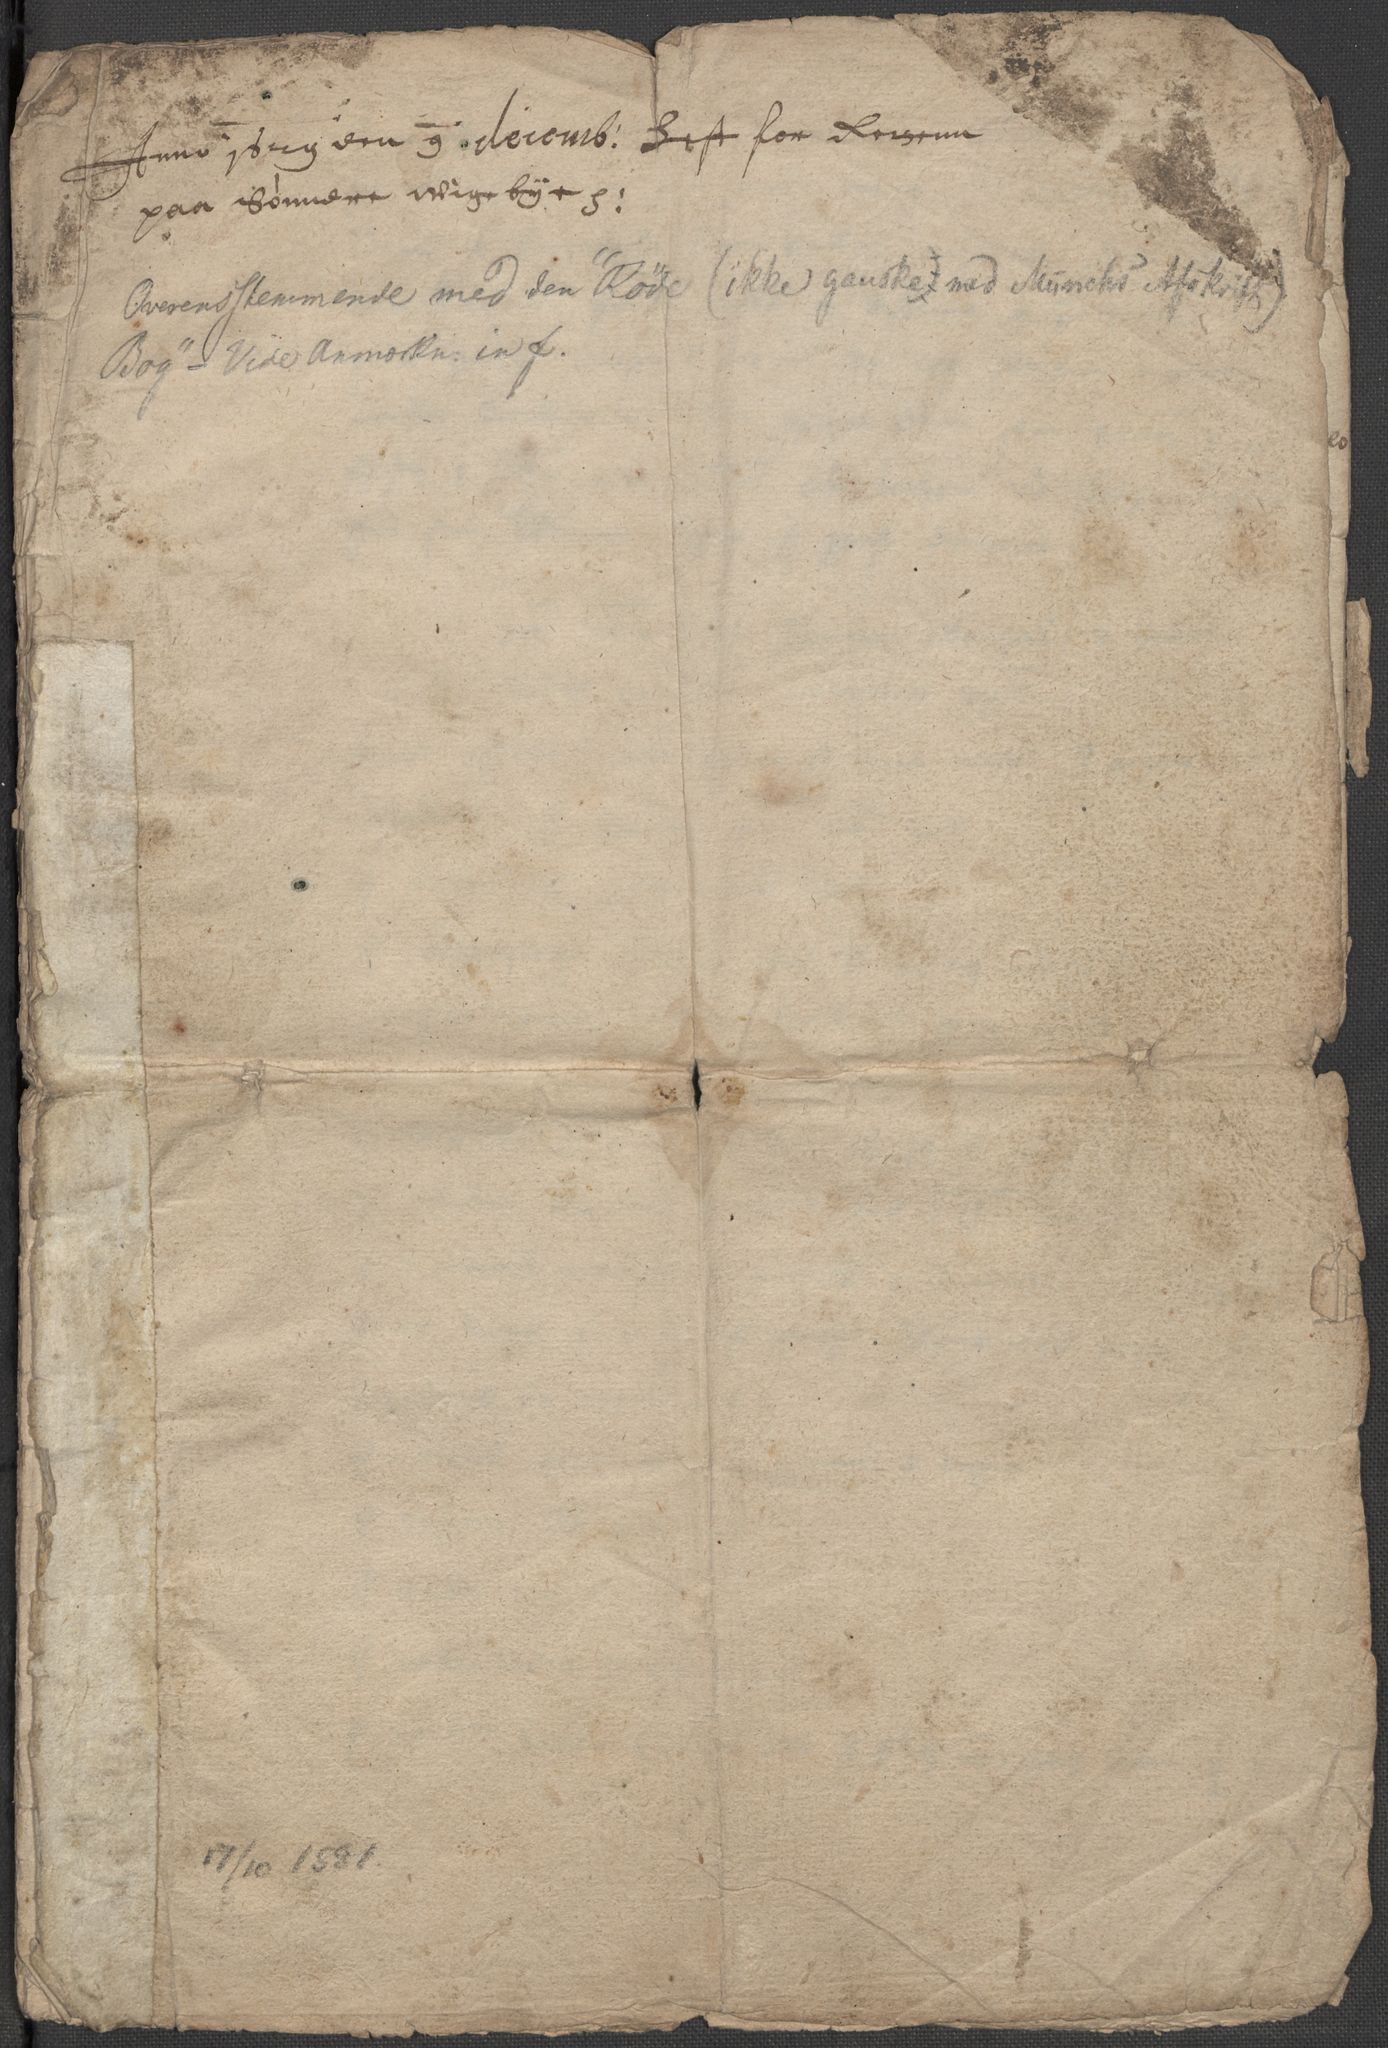 Anno den 9 decemb: Lest for Retzenn
paa Sönndre wigebÿe
Overensstemmende med den "Röde (ikke ganske med Münchs Afskrift)
Bog" - Vide Anmærkn: in f.
17/10 1581.